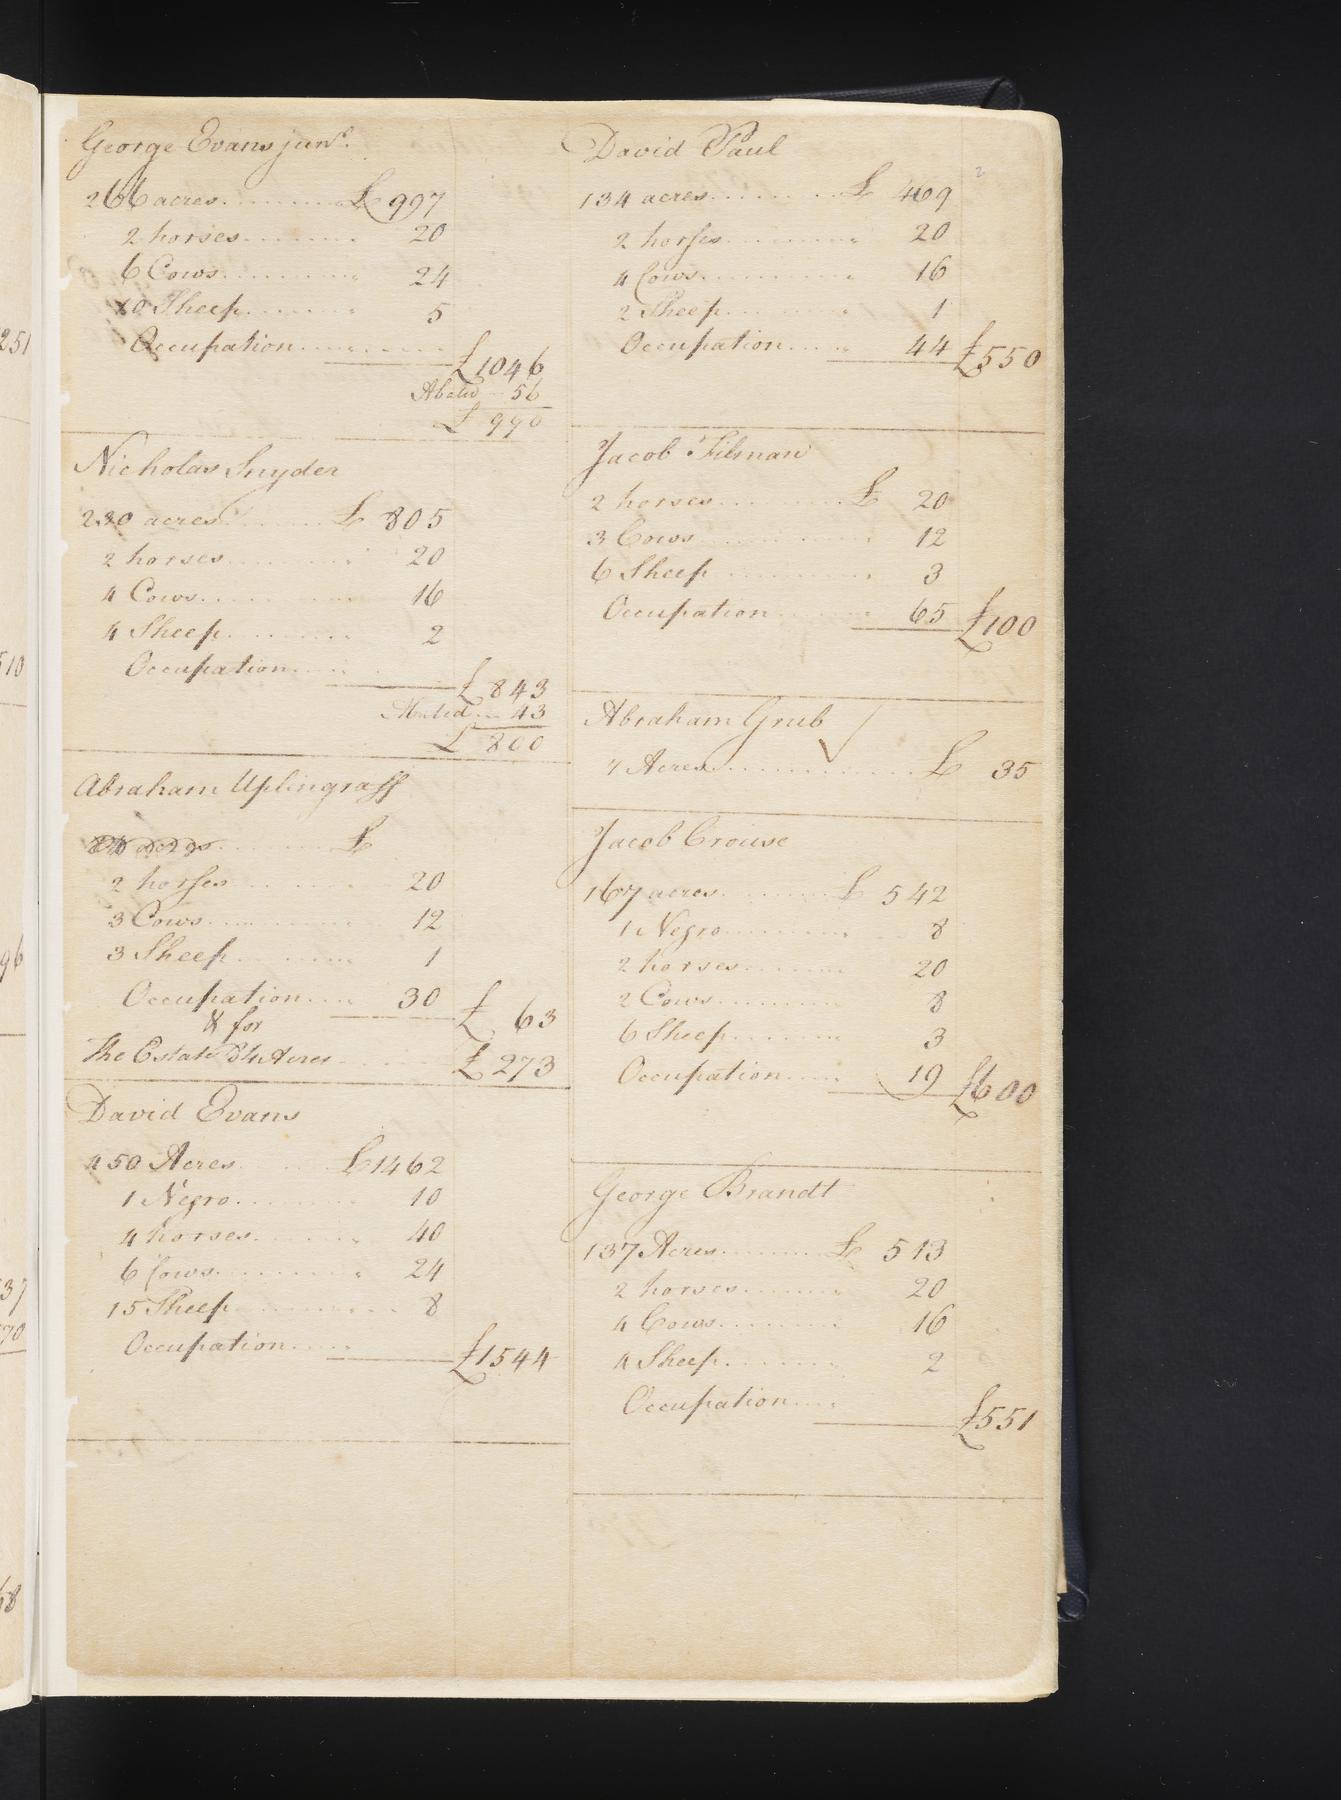 George Evans junr.
266 acres......... £ 997
2 horses........ 20
6 Cows......... 24
10 Sheep........ 5
Occupation.........
£1046
Abated 56
£ 990
Nicholas Snyder
230 acres....... £ 805
2 horses......... 20
4 Cows......... 16
4 Sheep......... 2
Occupation.....
£ 843
Abated... 43
£ 800
Abraham Uplingraff
acres......... £
2 horses....... 20
3 Cows......... 12
3 Sheep......... 1
Occupation.... 30 £ 63
& for
The Estate 84 Acres £ 273
David Evans
450 Acres...... £1462
1 Negro......... 10
4 horses........ 40
6 Cows......... 24
15 Sheep......... 8
Occupation..... £1544
David Paul
134 acres......... £ 469
2 horses......... 20
4 Cows......... 16
2 Sheep......... 1
Occupation.... 44 £550
Jacob Tilman
2 horses......... £ 20
3 Cows......... 12
6 Sheep......... 3
Occupation...... 65 £100
Abraham Grub
7 Acres............ £ 35
Jacob Crouse
167 acres......... £ 542
1 Negro......... 8
2 horses......... 20
2 Cows......... 8
6 Sheep......... 3
Occupation..... 19 £600
George Brandt
137 Acres......... £ 513
2 horses......... 20
4 Cows......... 16
4 Sheep......... 2
Occupation....
£551